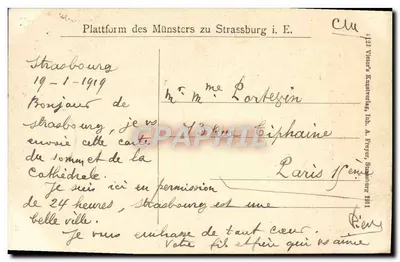 Plattform des Münsters zu Strassburg i. E.
Strasbourg
19-1-1919
Bonjour de
strasbourg, je vs
envoie cette carte
du sommet de la
Cathédrale.
Je suis ici en permission
de 24 heures, Strasbourg est une
belle ville.
Je vous embrasse de tout cœur.
Votre fils et frère qui vs aime
Mr Mme Portevin
73 rue Tiphaine
Paris 15ème
Kunstverlag, Inh. A. Preyer, Strassburg 1911